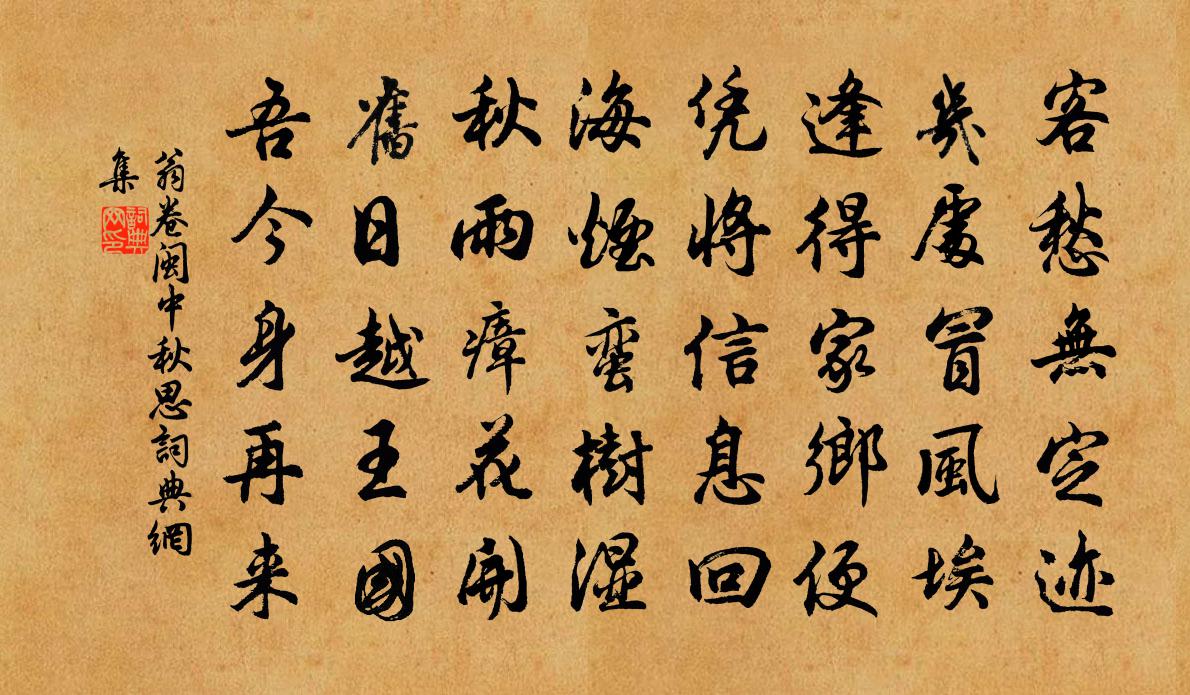 客愁無定迹
幾處冒風埃
逢得家鄉便
凭將信息回
海煙蛮樹濕
秋雨瘴花開
舊日越王國
吾今身再来
翁卷閩中秋思詞典網
集
詞典
网印